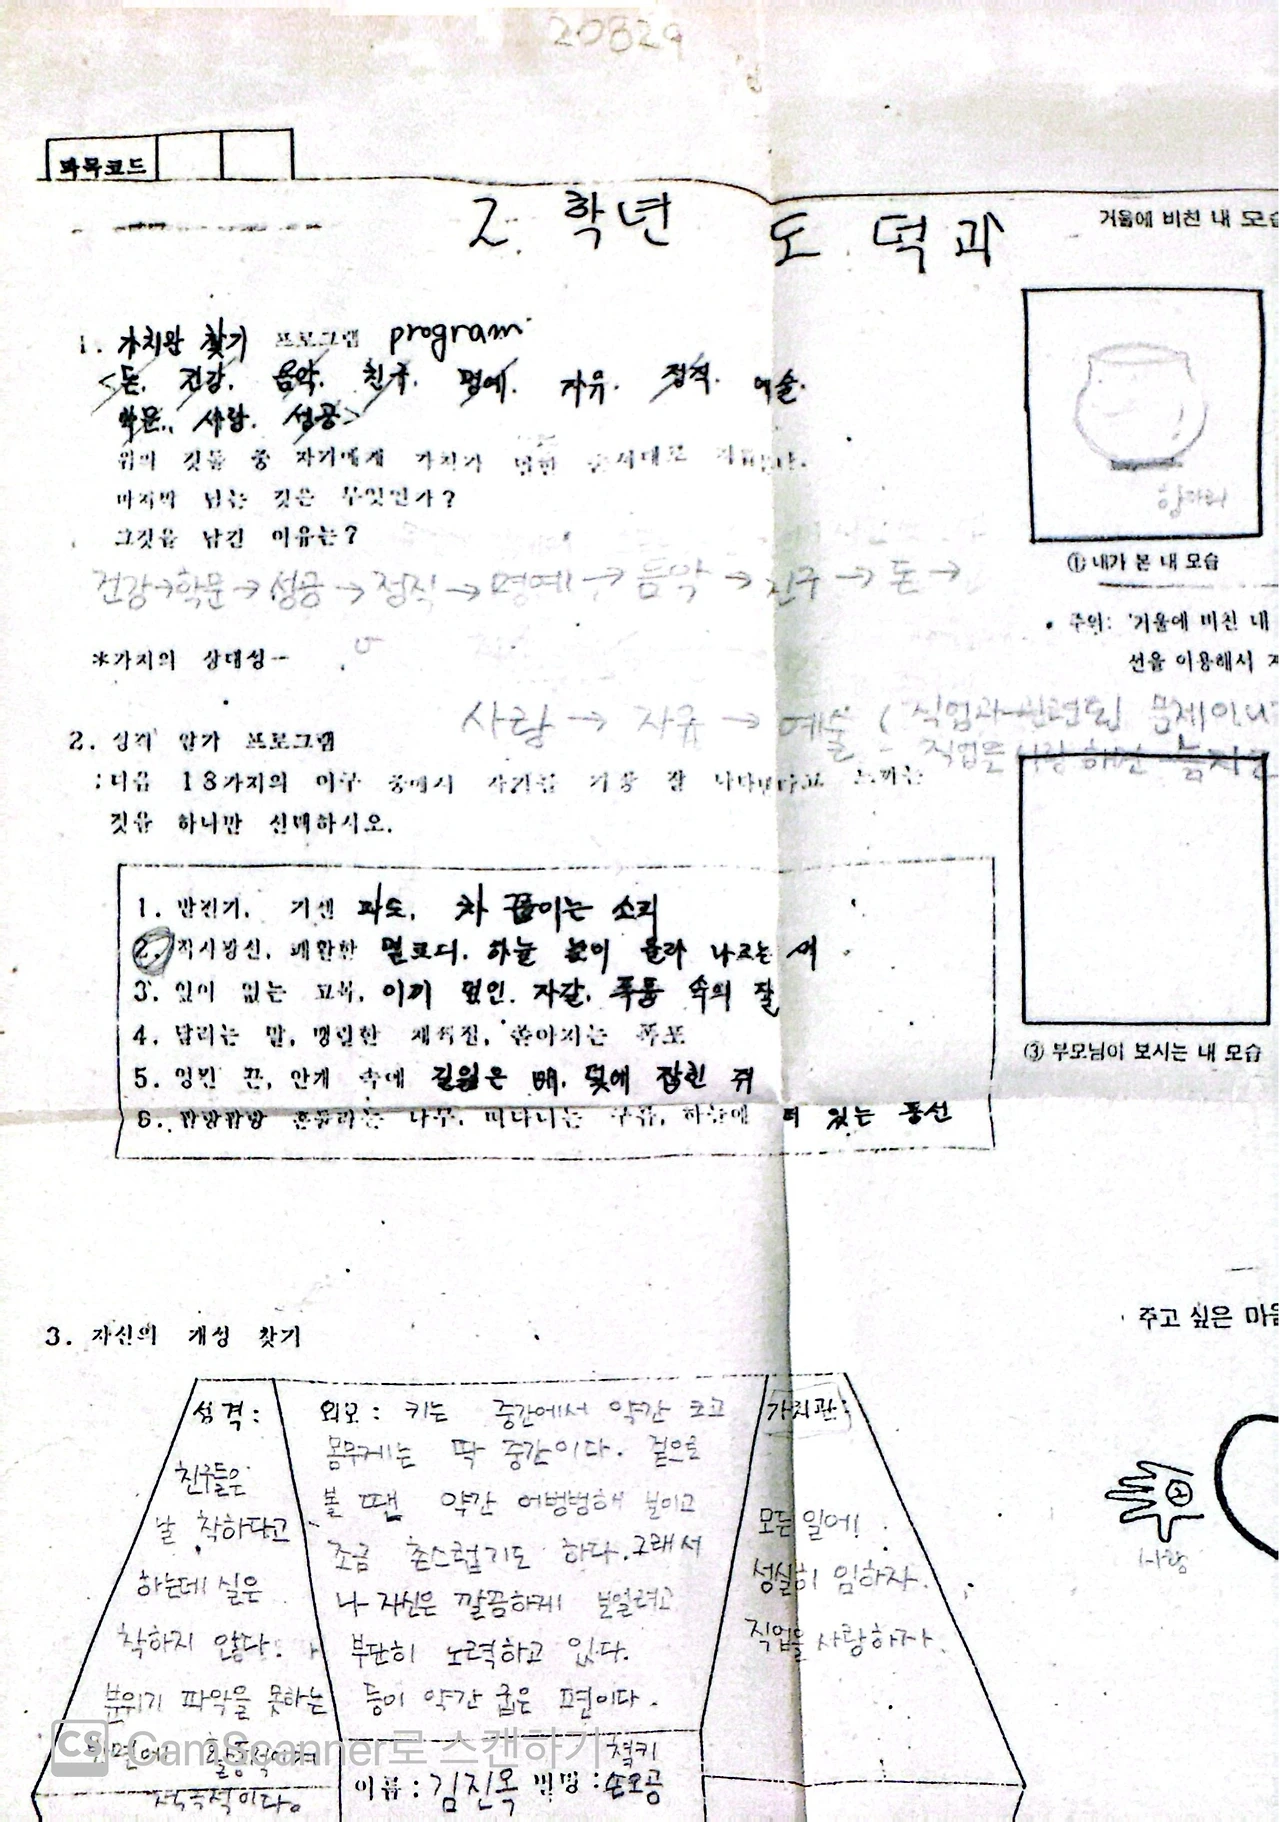 20829
과목코드
2. 학년 도 덕과
거울에 비친 내 모습
1. 가치관 찾기 프로그램 program
<돈. 건강. 음악. 친구. 명예. 자유. 정직. 예술.
학문. 사랑. 성공>
위의 것들 중 자기에게 가치가 순서대로
마지막 남는 것은 무엇인가?
그것을 남긴 이유는?
건강→학문→성공→정직→명예→음악→친구→돈→
사랑→자유→예술 (직업과 관련된 문제이니
직업을 사랑하면
*가치의 상대성-
항아리
① 내가 본 내 모습
• 주위: '거울에 비친 내
선을 이용해서
2. 성격 알기 프로그램
: 다음 18가지의 어구 중에서 자기를 가장 잘 나타낸다고 느끼는
것을 하나만 선택하시오.
1. 발전기, 거센 파도, 차 끓이는 소리
2. 직사광선, 쾌활한 멜로디, 하늘 높이 올라 나르는 새
3. 잎이 없는 고목, 이끼 덮인 자갈, 폭풍 속의
4. 달리는 말, 맹렬한 채찍질, 쏟아지는 폭포
5. 엉킨 끈, 안개 속에 길잃은 배, 덫에 잡힌 쥐
6. 흔들리는 나무, 떠다니는 구름, 하늘에 떠 있는 풍선
③ 부모님이 보시는 내 모습
3. 자신의 개성 찾기
주고 싶은 마음
성격:
친구들은
날 착하다고
하는데 실은
착하지 않다.
분위기 파악을 못하는
면에 활동적이며
적극적이다.
외모: 키는 중간에서 약간 크고
몸무게는 딱 중간이다. 겉으로
볼 땐 약간 어벙벙해 보이고
조금 촌스럽기도 하다. 그래서
나 자신은 깔끔하게 보일려고
부단히 노력하고 있다.
등이 약간 굽은 편이다.
가치관:
모든 일에!
성실히 임하자.
직업을 사랑하자.
②
사랑
척키
이름: 김진옥 별명: 손오공
CS CamScanner로 스캔하기